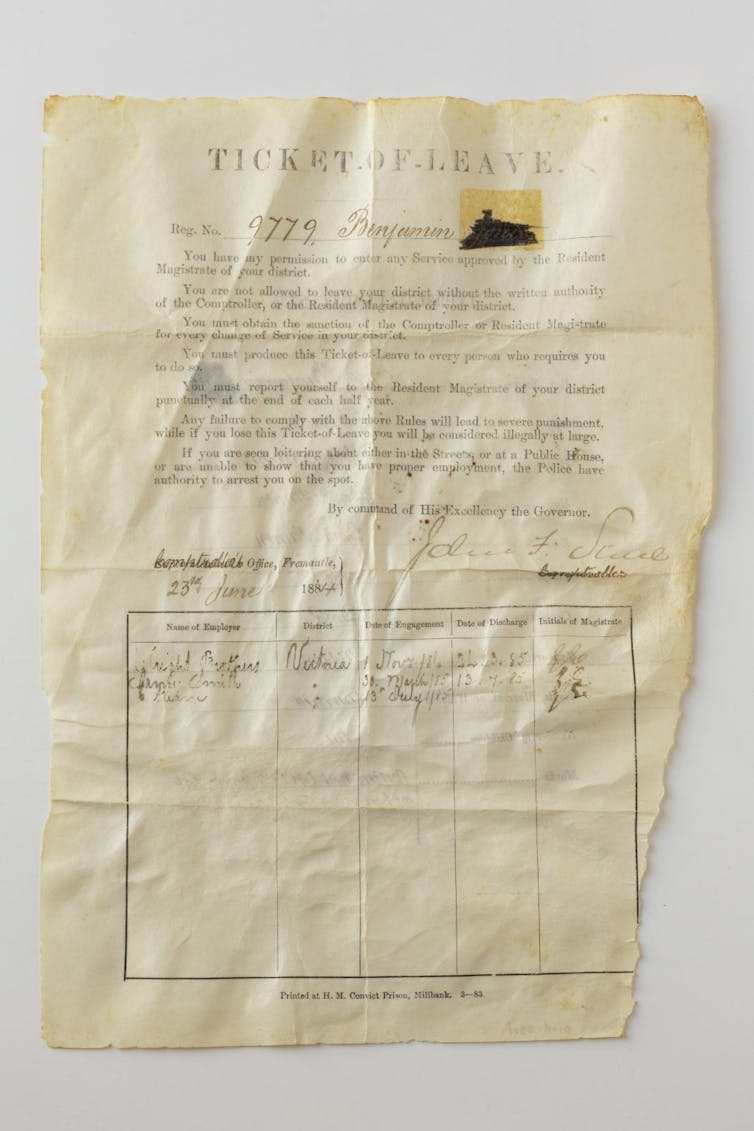 TICKET-OF-LEAVE.
Reg. No. 9779, Benjamin
You have my permission to enter any Service approved by the Resident
Magistrate of your district.
You are not allowed to leave your district without the written authority
of the Comptroller, or the Resident Magistrate of your district.
You must obtain the sanction of the Comptroller or Resident Magistrate
for every change of Service in your district.
You must produce this Ticket-of-Leave to every person who requires you
to do so.
You must report yourself to the Resident Magistrate of your district
punctually at the end of each half year.
Any failure to comply with the above Rules will lead to severe punishment,
while if you lose this Ticket-of-Leave you will be considered illegally at large.
If you are seen loitering about either in the Streets, or at a Public House,
or are unable to show that you have proper employment, the Police have
authority to arrest you on the spot.
By command of His Excellency the Governor.
John F.
Comptroller's Office, Fremantle,
Comptroller
23rd June 1884
Name of Employer District Date of Engagement Date of Discharge Initials of Magistrate
Wright Brothers Victoria 1 Novr /84 .3.85
Smith 30. March /85 13.7.85
13th July /85
Printed at H. M. Convict Prison, Millbank. 3—83.